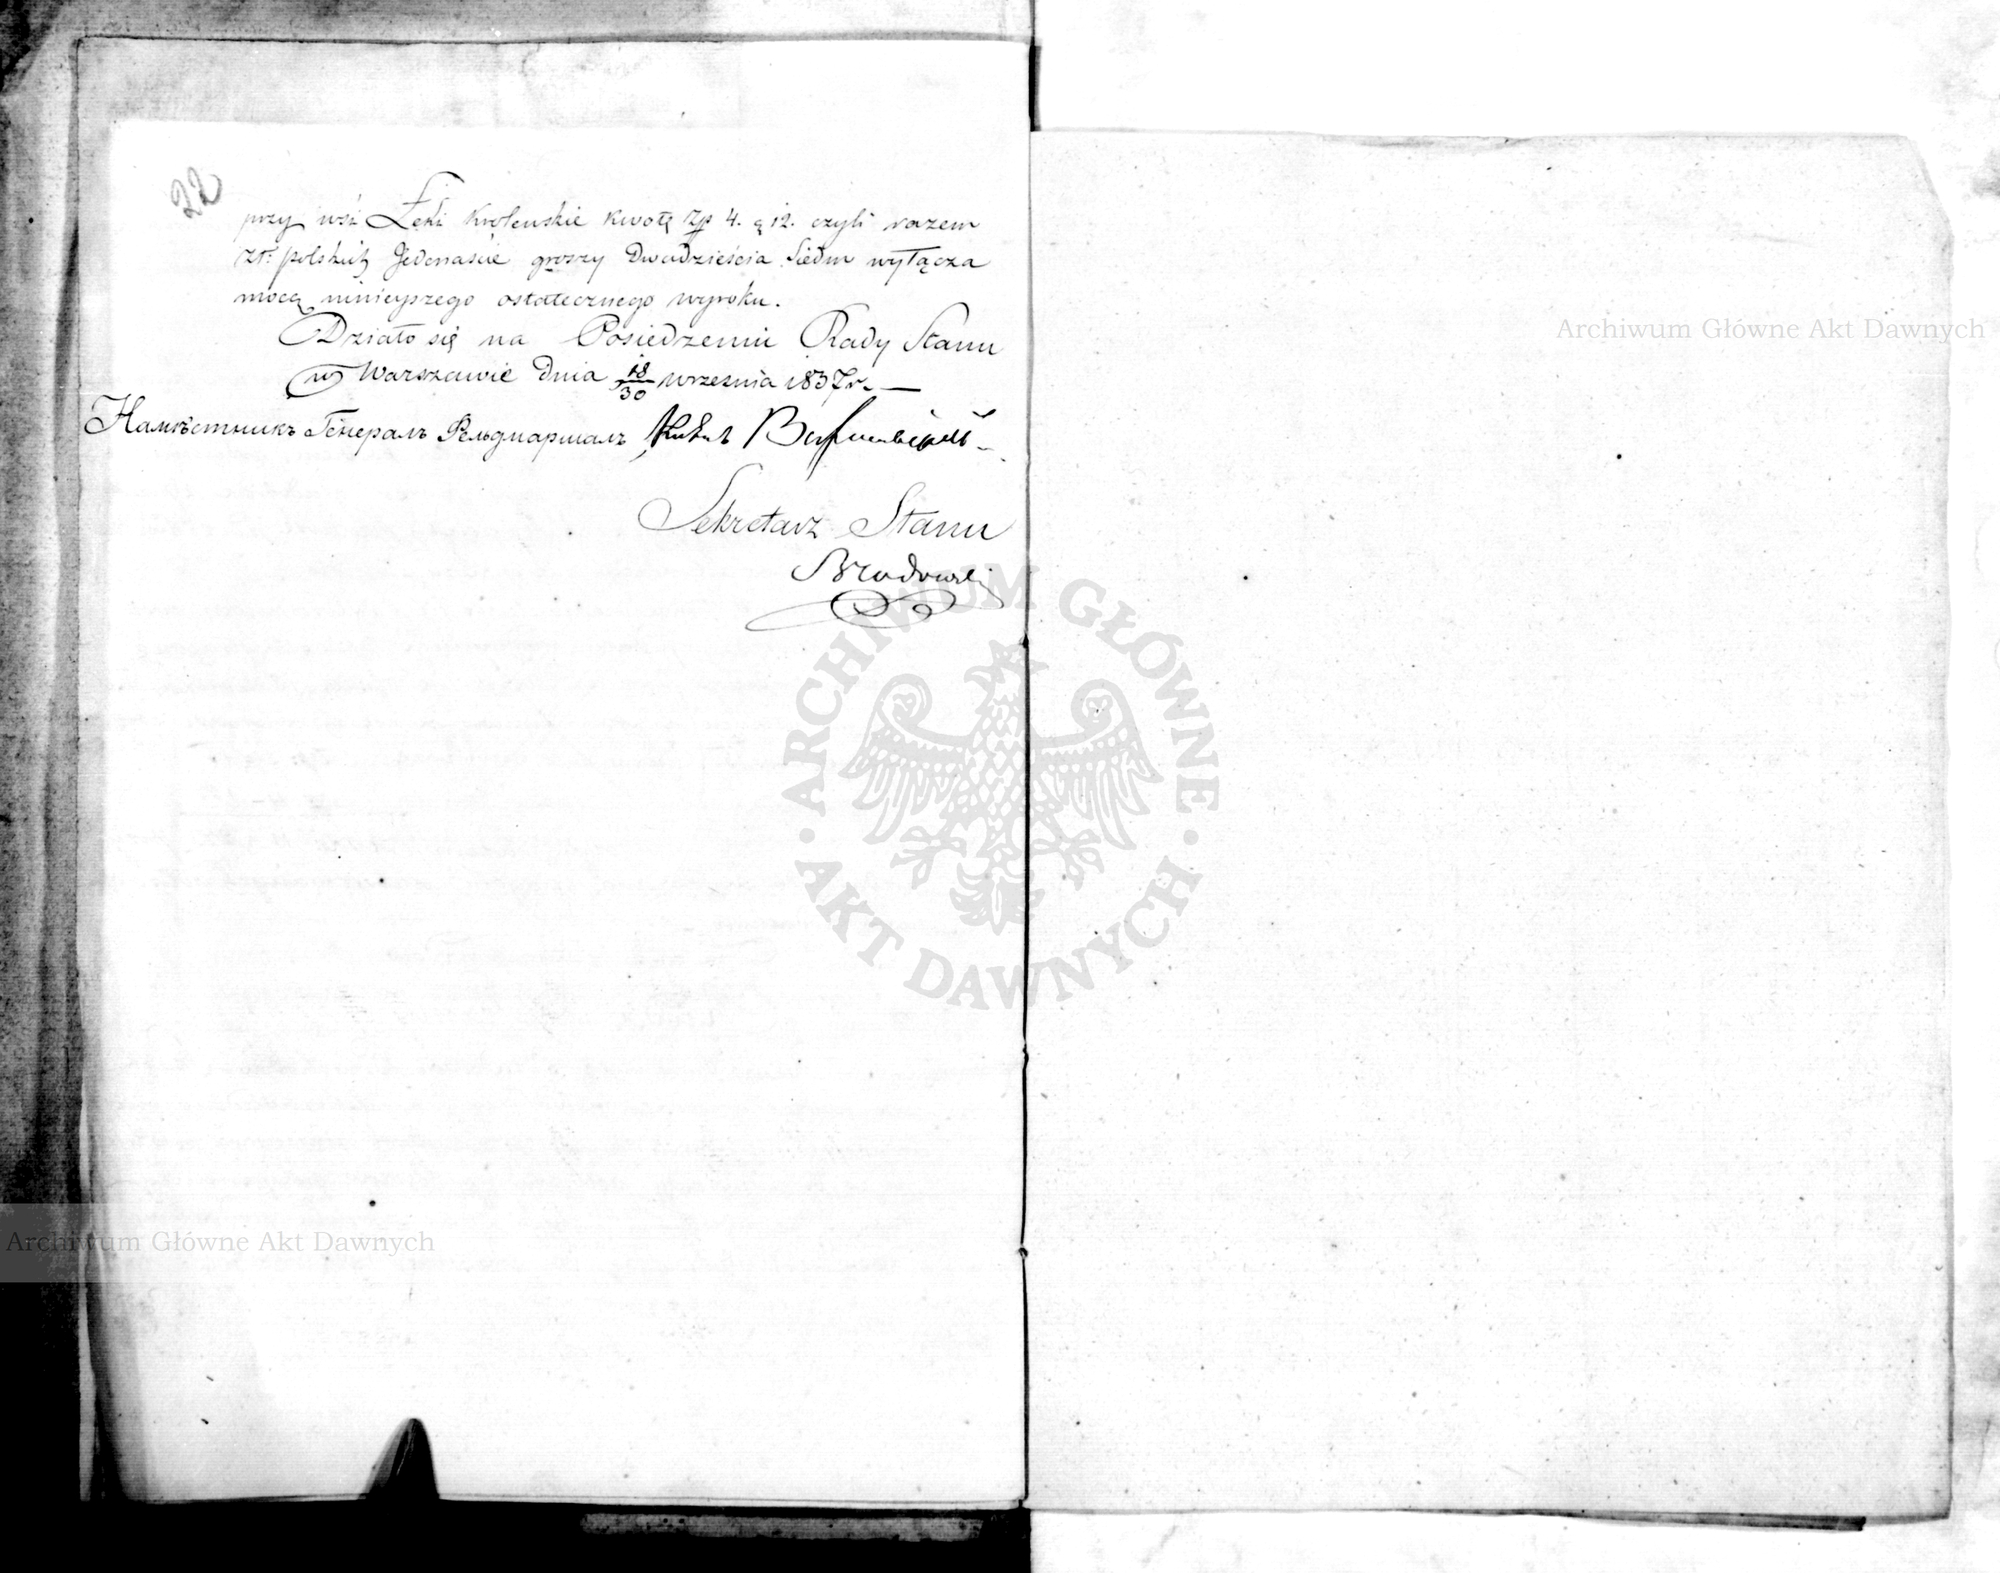 22
przy wsi Łęki Krolewskie kwotę Zp 4. g 12. czyli razem
Złt. polskich Jedenaście groszy Dwadzieścia Siedm wyłącza
mocą ninieyszego ostatecznego wyroku.
Działo się na Posiedzeniu Rady Stanu
w Warszawie dnia 18/30 września 1837 r.
Намѣстникъ Генералъ Фельдмаршалъ
Sekretarz Stanu
Brodowski
Archiwum Główne Akt Dawnych
Archiwum Główne Akt Dawnych
ARCHIWUM GŁÓWNE · AKT DAWNYCH ·